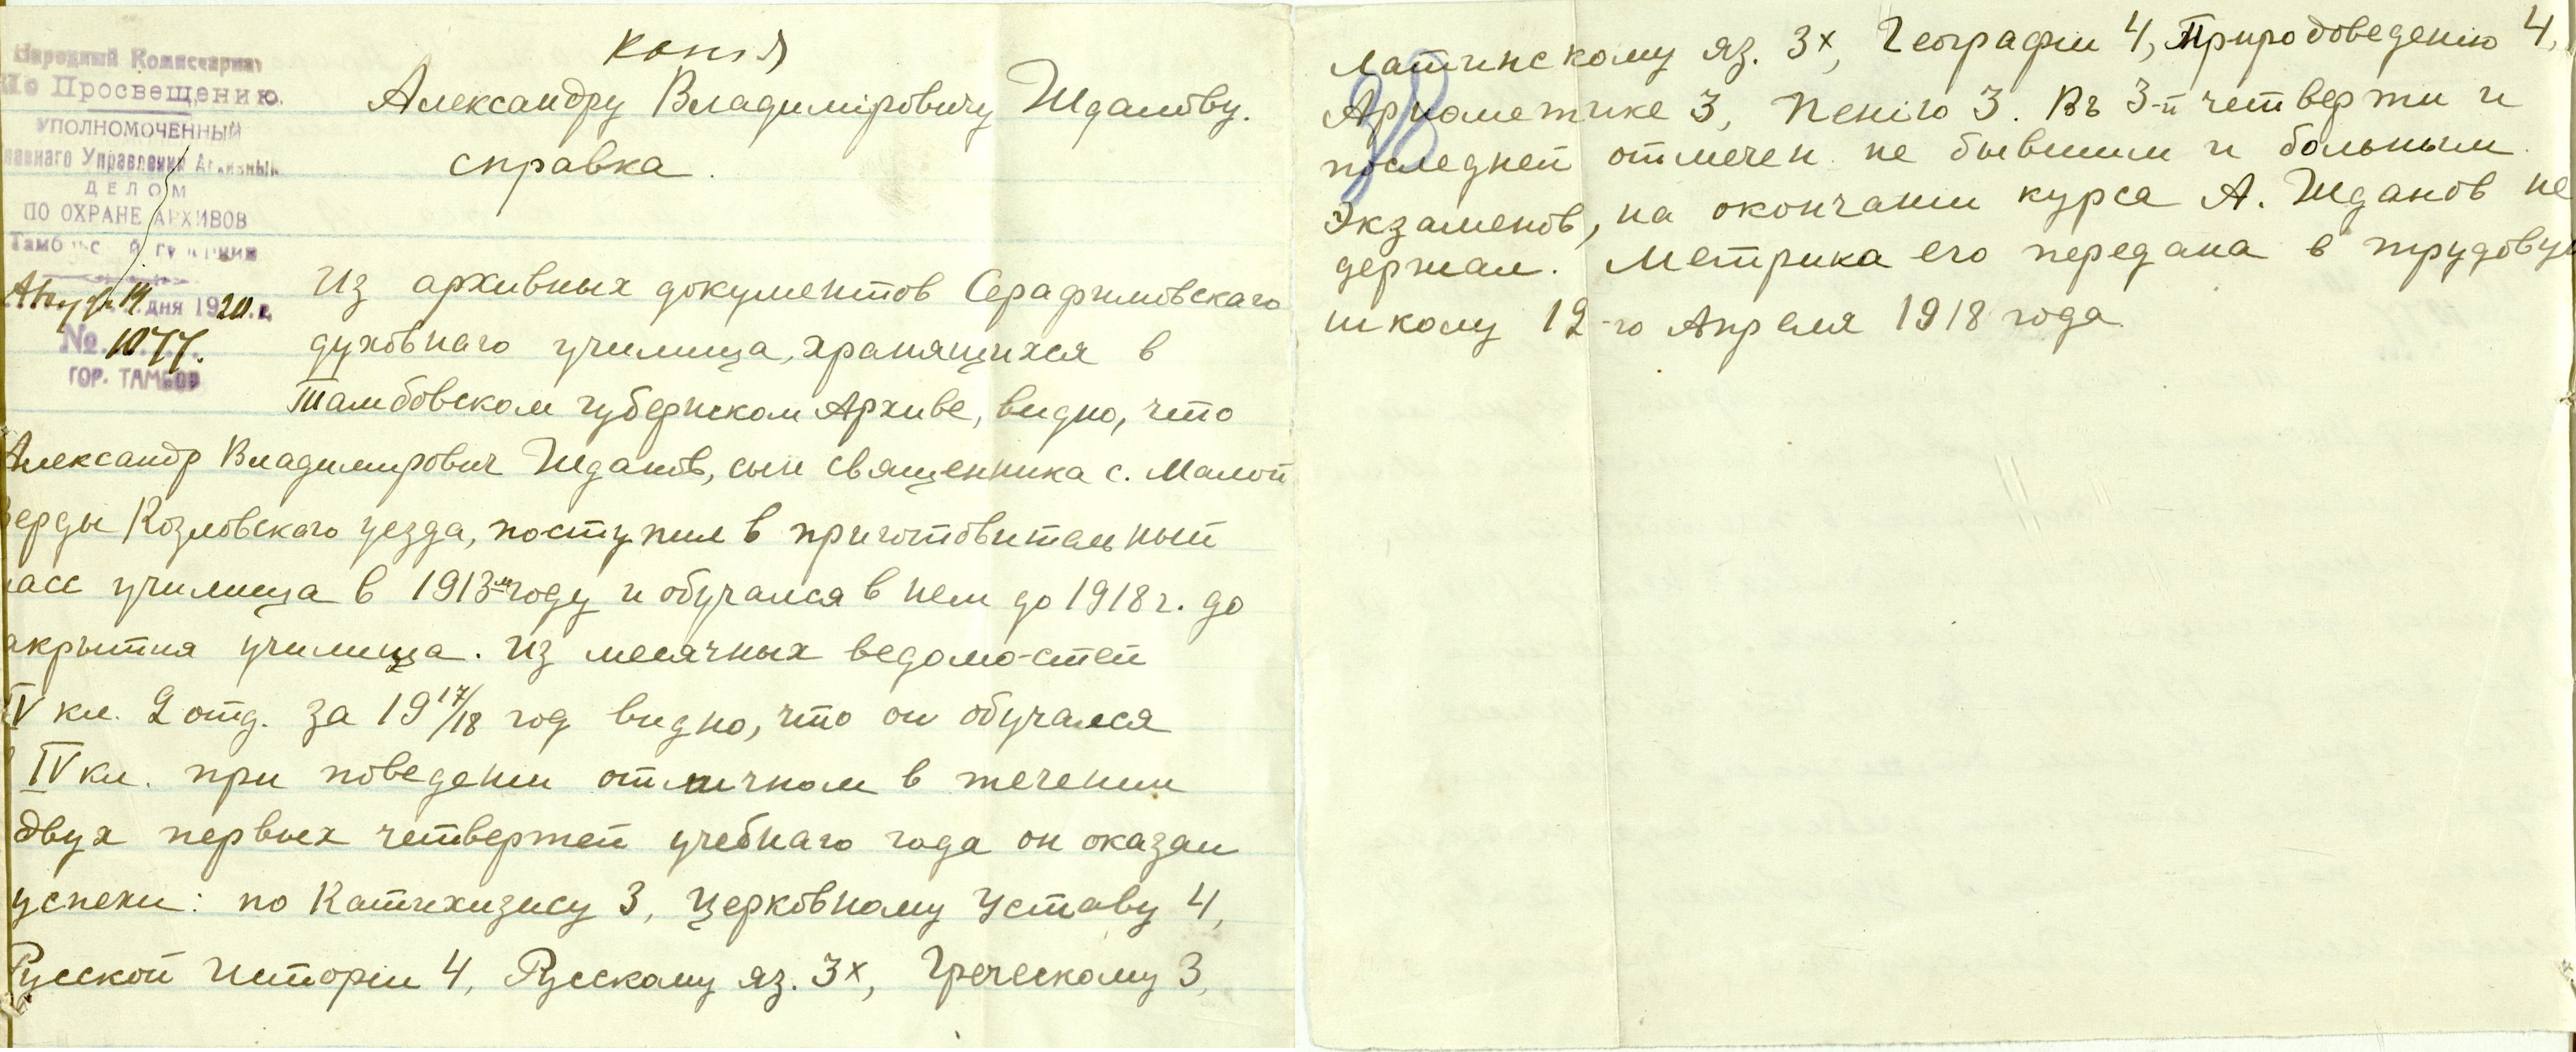 Народный Комиссариат
По Просвещению.
УПОЛНОМОЧЕННЫЙ
Главнаго Управления Архивным
ДЕЛОМ
ПО ОХРАНЕ АРХИВОВ
Тамбовской губернии
14 дня 1920 г.
№ 1077.
ГОР. ТАМБОВ
Копія
Александру Владиміровичу Жданову.
справка.
Из архивных документов Серафимовскаго
духовнаго училища, хранящихся в
Тамбовском губернском Архиве, видно, что
Александр Владимирович Жданов, сын священника с. Малой
Козловскаго уезда, поступил в приготовительный
асс училища в 1913-м году и обучался в нем до 1918 г. до
акрытия училища. Из месячных ведомо-стей
IV кл. 2 отд. за 1917/18 год видно, что он обучался
IV кл. при поведении отличном в течении
двух первых четвертей учебнаго года он оказал
успехи: по Катихизису 3, Церковному Уставу 4,
Русской Истории 4, Русскому яз. 3х, Греческому 3,
Латинскому яз. 3х, Географии 4, Природоведению 4,
Арифметике 3, Пенію 3. Въ 3-й четверти и
последней отмечен не бывшим и больным.
Экзаменов, на окончании курса А. Жданов не
держал. Метрика его передана в трудовую
школу 12-го Апреля 1918 года.